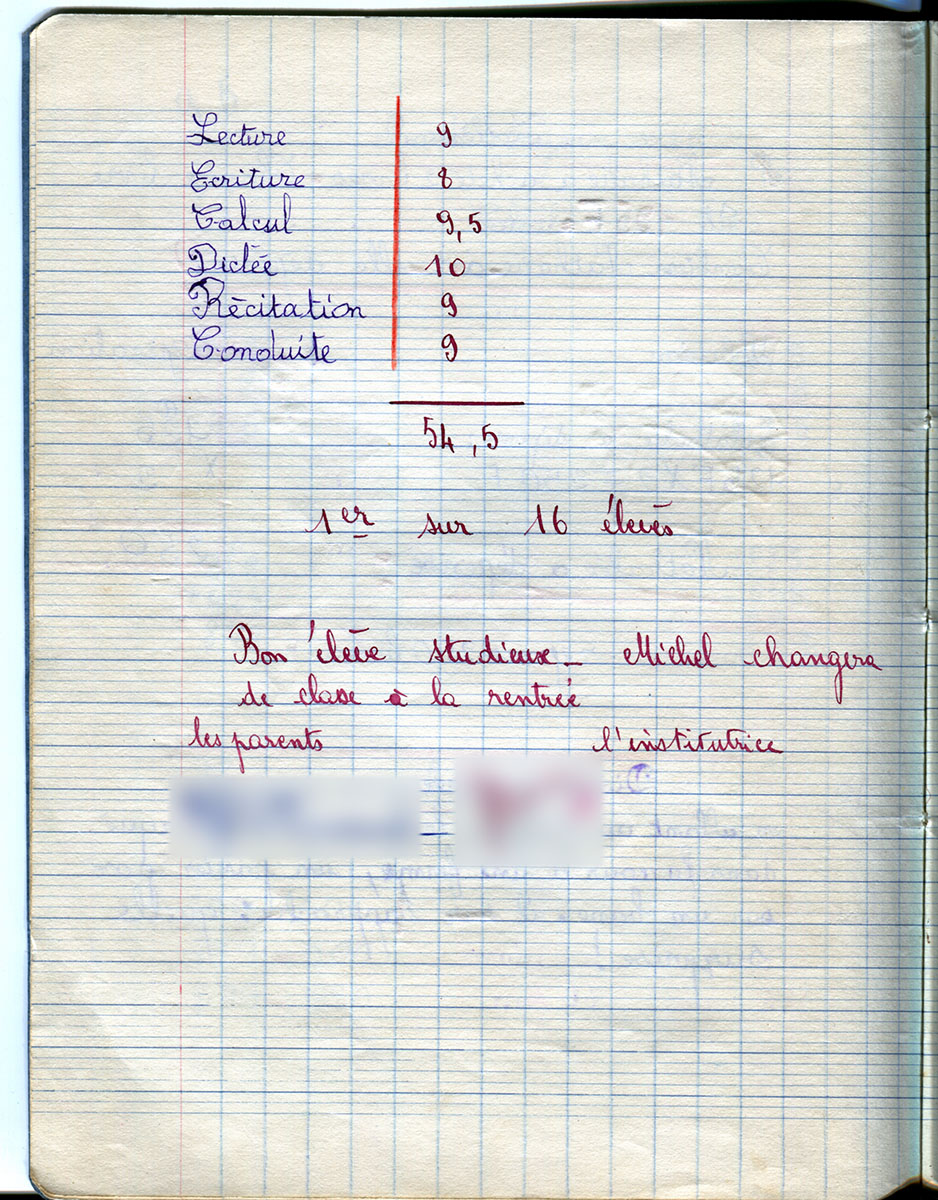 Lecture 9
Ecriture 8
Calcul 9,5
Dictée 10
Récitation 9
Conduite 9
54,5
1er sur 16 élevés
Bon élève studieux_ Michel changera
de classe à la rentrée
les parents l'institutrice